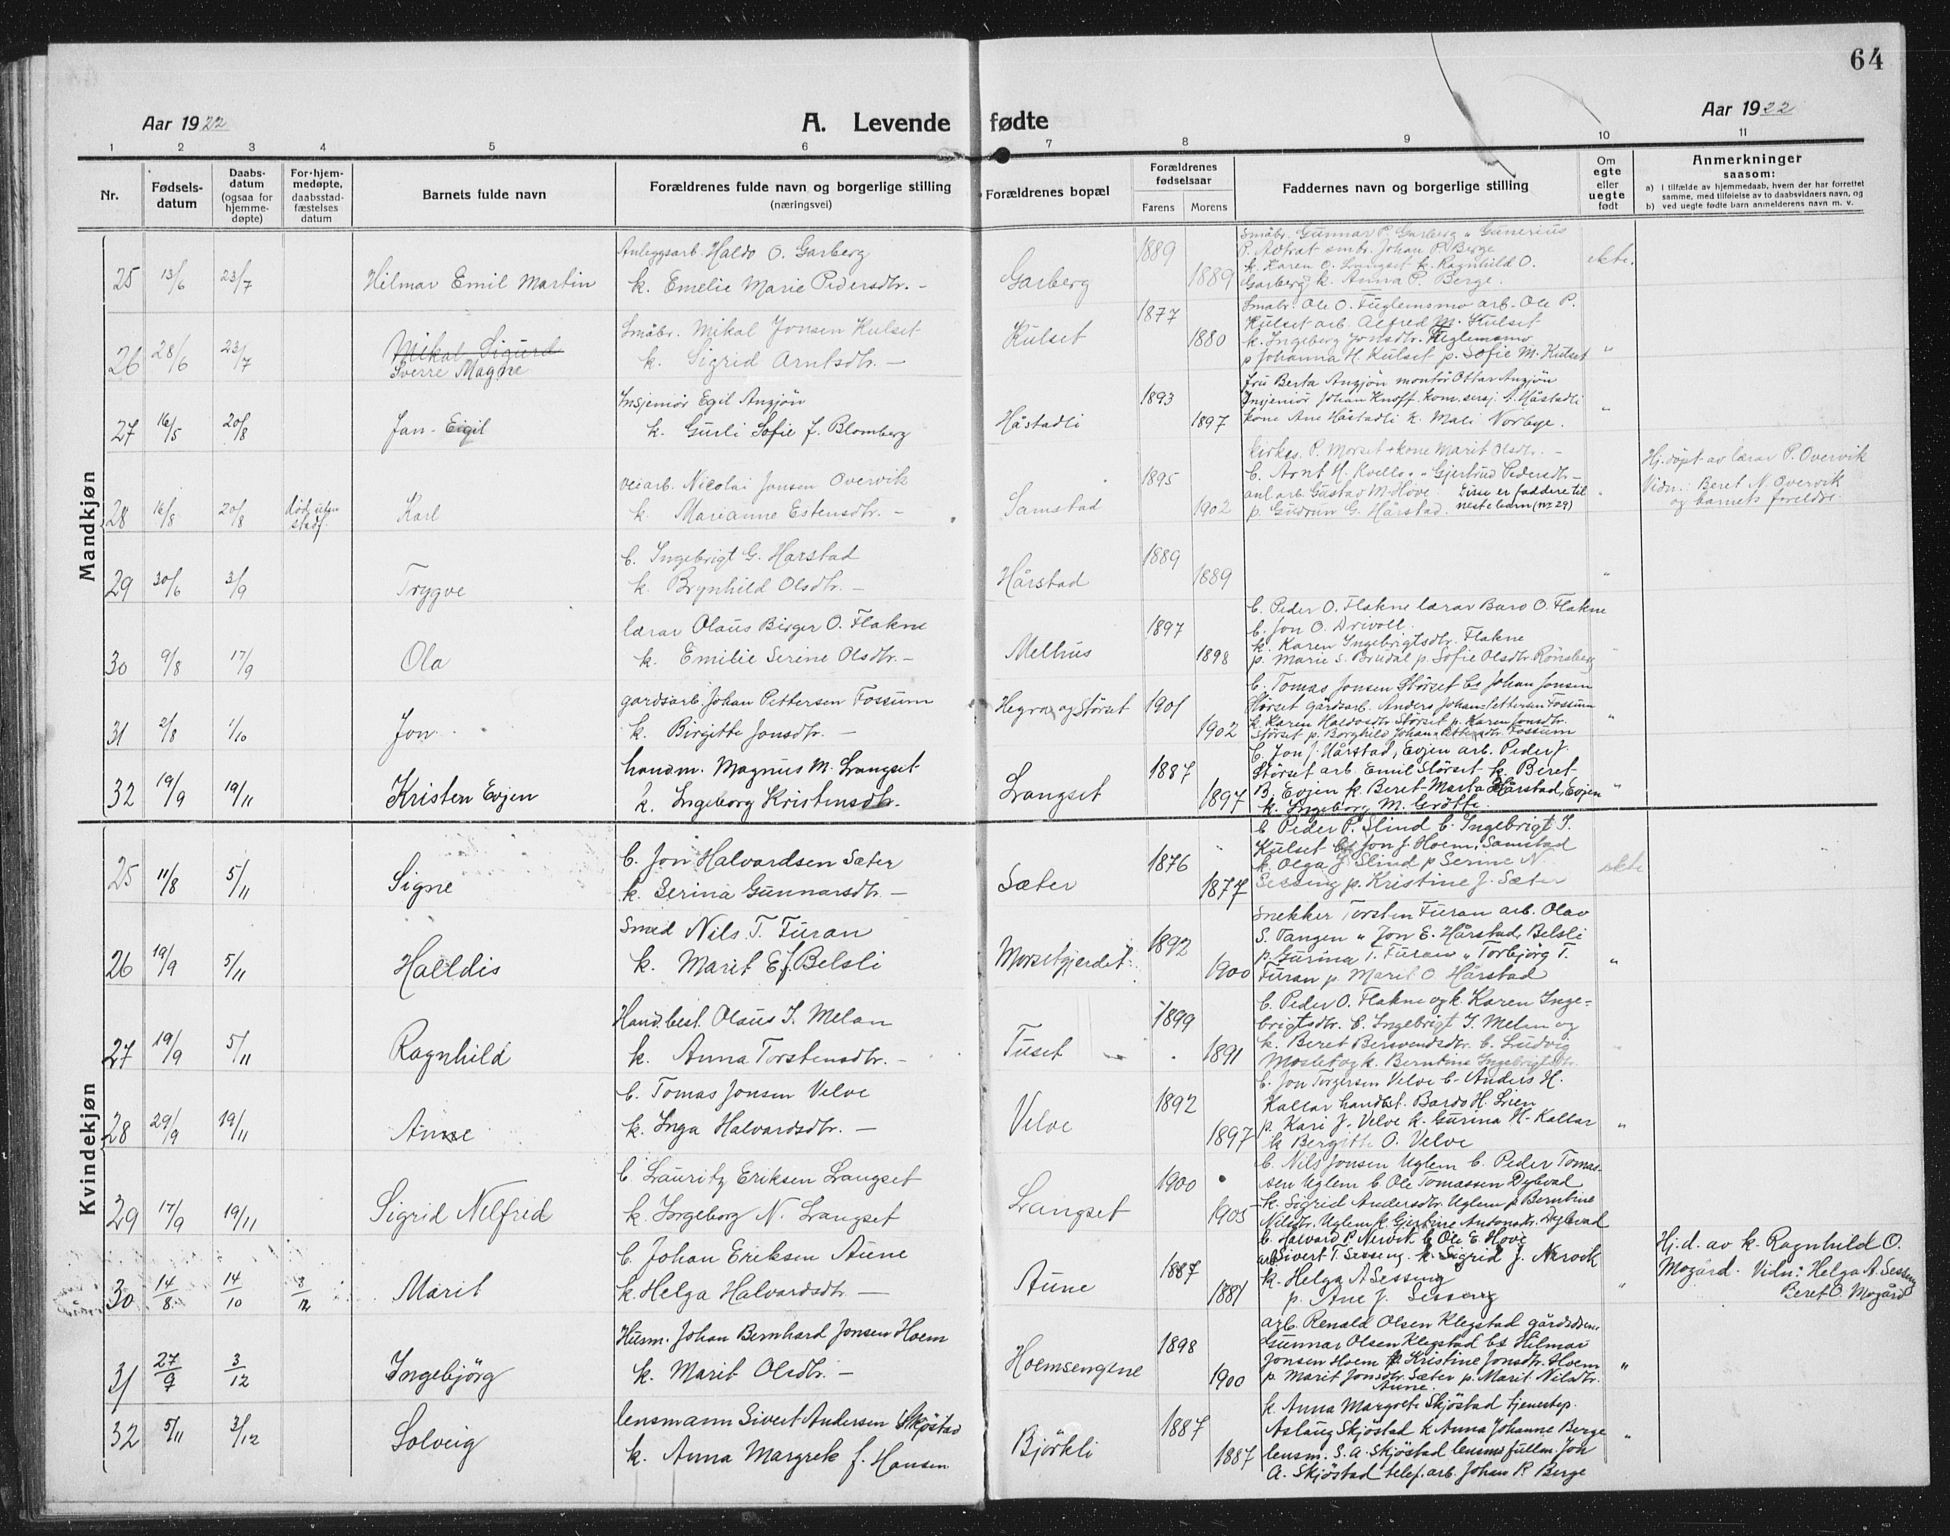 64
Aar 1922
A. Levende fødte
Aar 1922
1 2 3 4 5 6 7 8 9 10 11
Nr.
Fødsels-
datum
Daabs-
datum
(ogsaa for
hjemme-
døpte)
For hjem-
medøpte,
daabsstad-
fæstelses
datum
Barnets fulde navn
Forældrenes fulde navn og borgerlige stilling
(næringsvei)
Forældrenes bopæl
Forældrenes
fødselsaar
Farens Morens
Faddernes navn og borgerlige stilling
Om
egte
eller
uegte
født
Anmerkninger
saasom:
a) i tilfælde av hjemmedaab, hvem der har forrettet
samme, med tilføielse av to daabsvidners navn, og
b) ved uegte fødte barn anmelderens navn m. v.
Mandkjøn
25 13/6 23/7 Hilmar Emil Martin
Anleggsarb. Haldo O. Garberg
k. Emelie Marie Pedersdtr. —
Garberg 1889 1889
Småbr. Gunnar P. Garberg " Gunerius
P. smbr. Johan P. Berge
k. Karen O. Langset k. Ragnhild O.
Garberg k. Anna P. Berge.
ekte.
26 28/6 23/7 Mikal Sigurd
Sverre Magne
Småbr. Mikal Jonsen Kulset
k. Sigrid Arntsdtr. —
Kulset 1877 1880
Småbr. Ole O. Fuglemsmo arb. Ole P.
Kulset arb. Alfred M. Kulset
k. Ingeborg Jonsdtr. Fuglemsmo
p Johanna H. Kulset p. Sofie M. Kulset
"
27 16/5 20/8 Jan Eigil
Insjeniør Egil Anzjøn
k. Gurli Sofie f. Blomberg
Håstadli 1893 1897
Fru Berta Anzjøn montør Ottar Anzjøn
Insjeniør Johan Knoff. kom. sersj. A. Håstadli
kone Ane Håstadli k. Mali Norbye.
"
28 16/8 20/8 død uten
stadf. Karl
veiarb. Nicolai Jonsen Overvik
k. Marianne Estensdtr. —
Samstad 1895 1902
Kirkes. P. Morset + kone Marit Olsdtr. —
b. Arnt H. Kvello " Gjertrud Pedersdtr —
anl. arb. Gustav M. Hove. Disse er faddere til
p. Gudrun G. Hårstad. neste barn (nr. 29)
"
Hj.døpt av lærar P. Overvik
Vidn.: Beret N. Overvik
og barnets foreldre
29 30/6 3/9 Trygve
b. Ingebrigt G. Hårstad
k. Brynhild Olsdtr. —
Hårstad 1889 1889
"
30 9/8 17/9 Ola
lærar Olaus Birger O. Flakne
k. Emilie Serine Olsdtr. —
Melhus 1897 1898
b. Peder O. Flakne lærar Baro O. Flakne
b. Jon O. Drivoll.
k. Karen Ingebrigtsdtr. Flakne
p. Marie S. Brudal p. Sofie Olsdtr. Rønsberg
31 2/8 1/10 Jon
gardsarb. Johan Pettersen Fossum
k. Birgitte Jonsdtr. —
Hegra og Størset 1901 1902
b. Tomas Jonsen Størset bs Johan Jonsen
Størset gårdsarb. Anders Johan Pettersen Fossum
k. Karen Haldosdtr Størset p. Karen Jonsdtr.
Størset p. Borghild Johan Pettersdtr. Fossum
"
32 19/9 19/11 Kristen Evjen
handm. Magnus M. Langset
k. Ingeborg Kristensdtr.
Langset 1887 1897
b. Jon J. Hårstad, Evjen arb. Peder J.
Størset arb. Emil Størset k. Beret
B. Evjen k. Beret-Marta Hårstad, Evjen
k. Ingeborg M. Grøtte.
"
Kvindekjøn
25 11/8 5/11 Signe
b. Jon Halvardsen Sæter
k. Serina Gunnarsdtr. —
Sæter 1876 1877
b Peder P. Slind b. Ingebrigt J.
Kulset bs Jon J. Hoem, Samstad
k. Olga J. Slind p Serine N.
Sessing p. Kristine J. Sæter
ekte
26 19/9 5/11 Halldis
Smed Nils T. Furan
k. Marit E. f. Belsli
Morsetgjerdet 1892 1900
Snekker Torsten Furan arb. Olav
S. Tangen " Jon E. Hårstad, Belsli
p. Gurina T. Furan " Torbjörg T.
Furan p Marit O Hårstad
"
27 19/9 5/11 Ragnhild
Hand.best. Olaus I. Melan
k. Anna Torstensdtr. —
Tuset 1899 1891
b. Peder O. Flakne og k. Karen Inge-
brigtsdtr. b. Ingebrigt I. Melan og
k. Beret Bersvendsdtr. b. Ludvig
Moslet og k. Berntine Ingebrigtsdtr.
28 29/9 19/11 Anne
b. Tomas Jonsen Velve
k. Inga Halvardsdtr. —
Velve 1892 1897
b. Jon Torgersen Velve b. Anders H.
Kallar handbst. Bardo H. Lien
p. Kari J. Velve k. Gurina H. Kallar
k Bergitte O. Velve
"
29 17/9 19/11 Sigrid Nelfred
b Lauritz Eriksen Langset
k. Ingeborg N. Langset
Langset 1900 1905
b. Nils Jonsen Uglem b. Peder Tomas-
sen Uglem b Ole Tomassen Dybvad
k. Sigrid Andersdtr. Uglem p Berntine
Nilsdtr. Uglem k. Gjertine Antonsdtr. Dybvad
30 14/8 14/10 3/12 Marit
b. Johan Eriksen Aune
k. Helga Halvardsdtr —
Aune 1887 1881
b. Halvard P. Nervik b Ole E. Hove
arb Sivert T. Sessing. k. Sigrid J. Nervik
k. Helga A Sessing
p. Ane J. Sessing
"
Hj.d. av k. Ragnhild O.
Mogård. Vidn: Helga A. Sessing
Beret O. Mogård
31 27/9 3/12 Ingebjörg
Husm. Johan Bernhard Jonsen Hoem
k. Marit Olsdtr —
Hoemsengene 1898 1900
arb. Renald Olsen Klegstad
Gunnar Olsen Klegstad bs Hilmar
Jonsen Hoem p. Kristine Jonsdtr. Hoem
p. Marit Jonsdtr. Sæter p. Marit Nilsdtr.
Aune.
"
32 5/11 3/12 Solveig
lensmann Sivert Andersen Skjöstad
k. Anna Margrete f. Hansen
Björkli 1887 1887
k. Anna Margrete Skjöstad tjenestep.
Aslaug Skjöstad k Anna Johanne Berge
lensm. S. A. Skjöstad lensmsfullm. Jon
A. Skjöstad telef. arb. Johan P. Berge
"